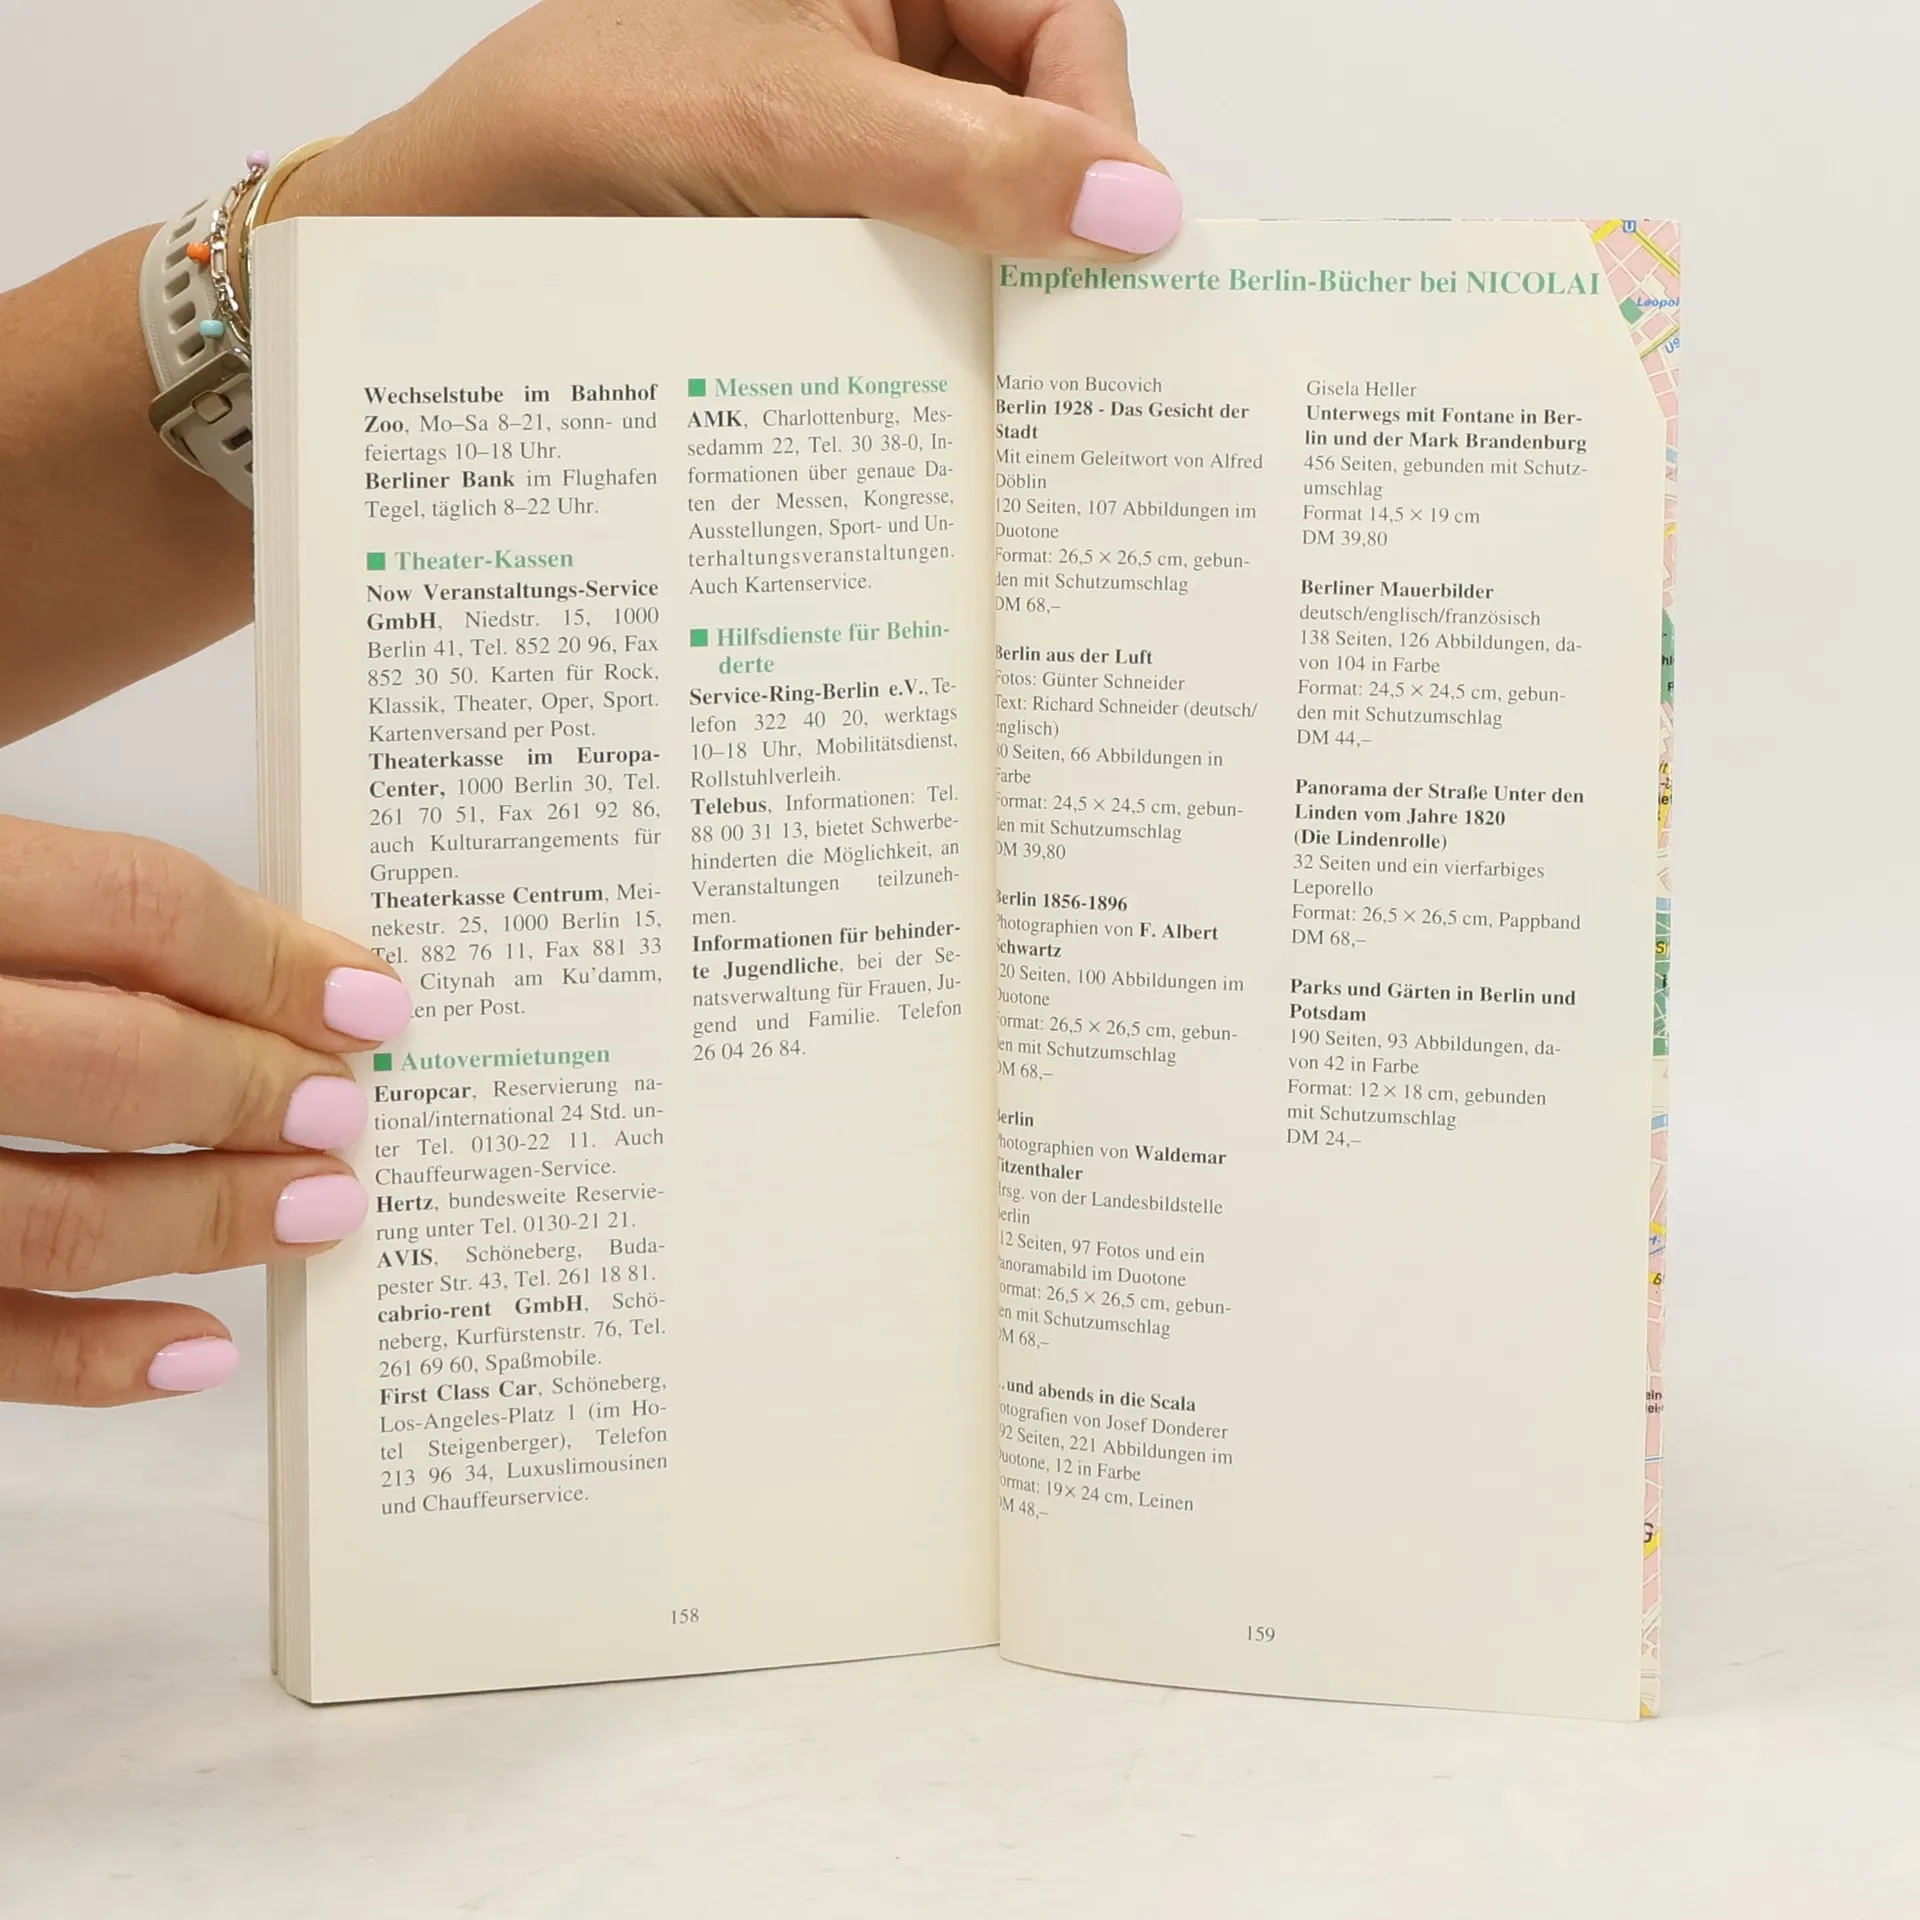 Wechselstube im Bahnhof
Zoo, Mo–Sa 8–21, sonn- und
feiertags 10–18 Uhr.
Berliner Bank im Flughafen
Tegel, täglich 8–22 Uhr.
■ Theater-Kassen
Now Veranstaltungs-Service
GmbH, Niedstr. 15, 1000
Berlin 41, Tel. 852 20 96, Fax
852 30 50. Karten für Rock,
Klassik, Theater, Oper, Sport.
Kartenversand per Post.
Theaterkasse im Europa-
Center, 1000 Berlin 30, Tel.
261 70 51, Fax 261 92 86,
auch Kulturarrangements für
Gruppen.
Theaterkasse Centrum, Mei-
nekestr. 25, 1000 Berlin 15,
Tel. 882 76 11, Fax 881 33
Citynah am Ku'damm,
en per Post.
■ Autovermietungen
Europcar, Reservierung na-
tional/international 24 Std. un-
ter Tel. 0130-22 11. Auch
Chauffeurwagen-Service.
Hertz, bundesweite Reservie-
rung unter Tel. 0130-21 21.
AVIS, Schöneberg, Buda-
pester Str. 43, Tel. 261 18 81.
cabrio-rent GmbH, Schö-
neberg, Kurfürstenstr. 76, Tel.
261 69 60, Spaßmobile.
First Class Car, Schöneberg,
Los-Angeles-Platz 1 (im Ho-
tel Steigenberger), Telefon
213 96 34, Luxuslimousinen
und Chauffeurservice.
■ Messen und Kongresse
AMK, Charlottenburg, Mes-
sedamm 22, Tel. 30 38-0, In-
formationen über genaue Da-
ten der Messen, Kongresse,
Ausstellungen, Sport- und Un-
terhaltungsveranstaltungen.
Auch Kartenservice.
■ Hilfsdienste für Behin-
derte
Service-Ring-Berlin e.V., Te-
lefon 322 40 20, werktags
10–18 Uhr, Mobilitätsdienst,
Rollstuhlverleih.
Telebus, Informationen: Tel.
88 00 31 13, bietet Schwerbe-
hinderten die Möglichkeit, an
Veranstaltungen teilzuneh-
men.
Informationen für behinder-
te Jugendliche, bei der Se-
natsverwaltung für Frauen, Ju-
gend und Familie. Telefon
26 04 26 84.
158
Empfehlenswerte Berlin-Bücher bei NICOLAI
Mario von Bucovich
Berlin 1928 - Das Gesicht der
Stadt
Mit einem Geleitwort von Alfred
Döblin
120 Seiten, 107 Abbildungen im
Duotone
Format: 26,5 × 26,5 cm, gebun-
den mit Schutzumschlag
DM 68,–
Berlin aus der Luft
Fotos: Günter Schneider
Text: Richard Schneider (deutsch/
englisch)
80 Seiten, 66 Abbildungen in
Farbe
Format: 24,5 × 24,5 cm, gebun-
den mit Schutzumschlag
DM 39,80
Berlin 1856-1896
Photographien von F. Albert
Schwartz
20 Seiten, 100 Abbildungen im
Duotone
Format: 26,5 × 26,5 cm, gebun-
den mit Schutzumschlag
DM 68,–
Berlin
Photographien von Waldemar
Titzenthaler
Hrsg. von der Landesbildstelle
Berlin
12 Seiten, 97 Fotos und ein
Panoramabild im Duotone
Format: 26,5 × 26,5 cm, gebun-
den mit Schutzumschlag
DM 68,–
...und abends in die Scala
Fotografien von Josef Donderer
92 Seiten, 221 Abbildungen im
Duotone, 12 in Farbe
Format: 19 × 24 cm, Leinen
DM 48,–
Gisela Heller
Unterwegs mit Fontane in Ber-
lin und der Mark Brandenburg
456 Seiten, gebunden mit Schutz-
umschlag
Format 14,5 × 19 cm
DM 39,80
Berliner Mauerbilder
deutsch/englisch/französisch
138 Seiten, 126 Abbildungen, da-
von 104 in Farbe
Format: 24,5 × 24,5 cm, gebun-
den mit Schutzumschlag
DM 44,–
Panorama der Straße Unter den
Linden vom Jahre 1820
(Die Lindenrolle)
32 Seiten und ein vierfarbiges
Leporello
Format: 26,5 × 26,5 cm, Pappband
DM 68,–
Parks und Gärten in Berlin und
Potsdam
190 Seiten, 93 Abbildungen, da-
von 42 in Farbe
Format: 12 × 18 cm, gebunden
mit Schutzumschlag
DM 24,–
159
U
Leopol
U9